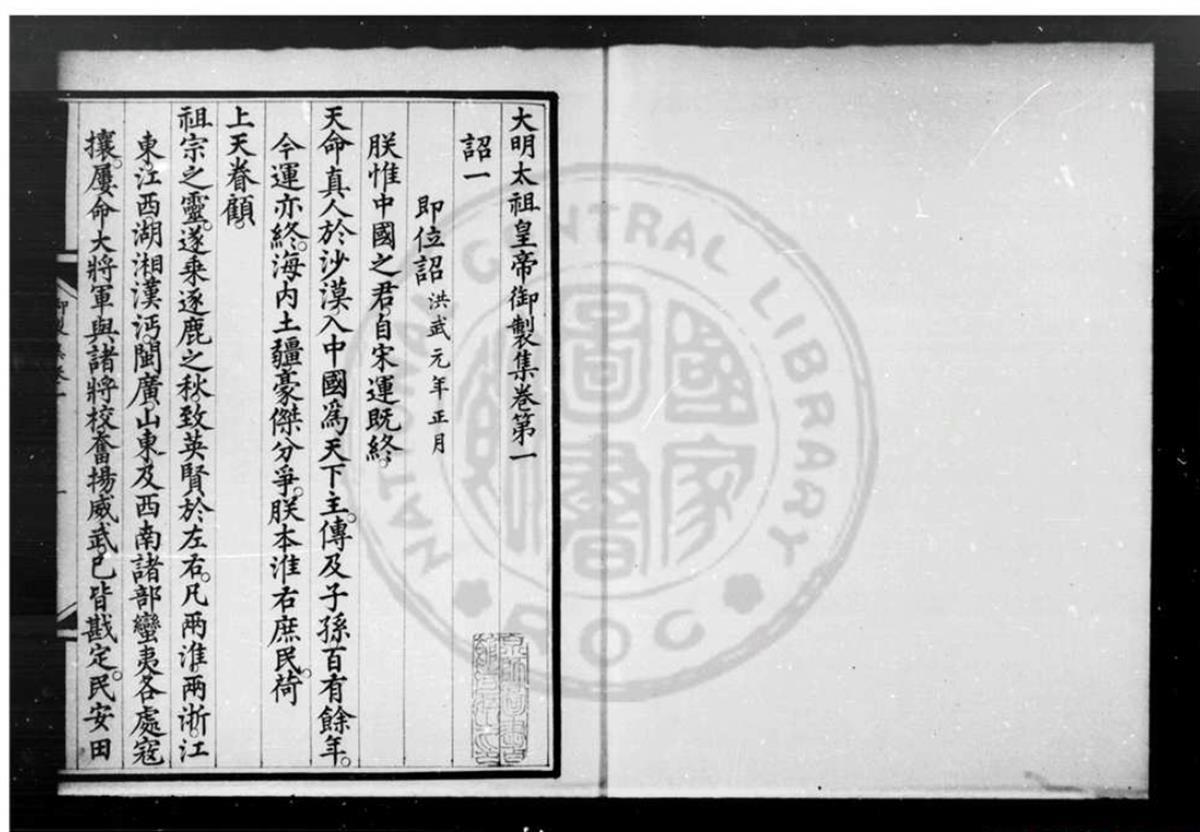 大明太祖皇帝御製集卷第一
詔一
即位詔 洪武元年正月
朕惟中國之君。自宋運既終。
天命真人於沙漠。入中國為天下主。傳及子孫百有餘年。
今運亦終。海内土疆豪傑分爭。朕本淮右庶民。荷
上天眷顧。
祖宗之靈。遂乘逐鹿之秋。致英賢於左右。凡兩淮兩浙。江
東。江西。湖湘。漢沔。閩廣。山東。及西南諸部蠻夷。各處寇
攘。屢命大將軍與諸將校奮揚威武。已皆戡定。民安田
NATIONAL CENTRAL LIBRARY
R.O.C.
國家圖書